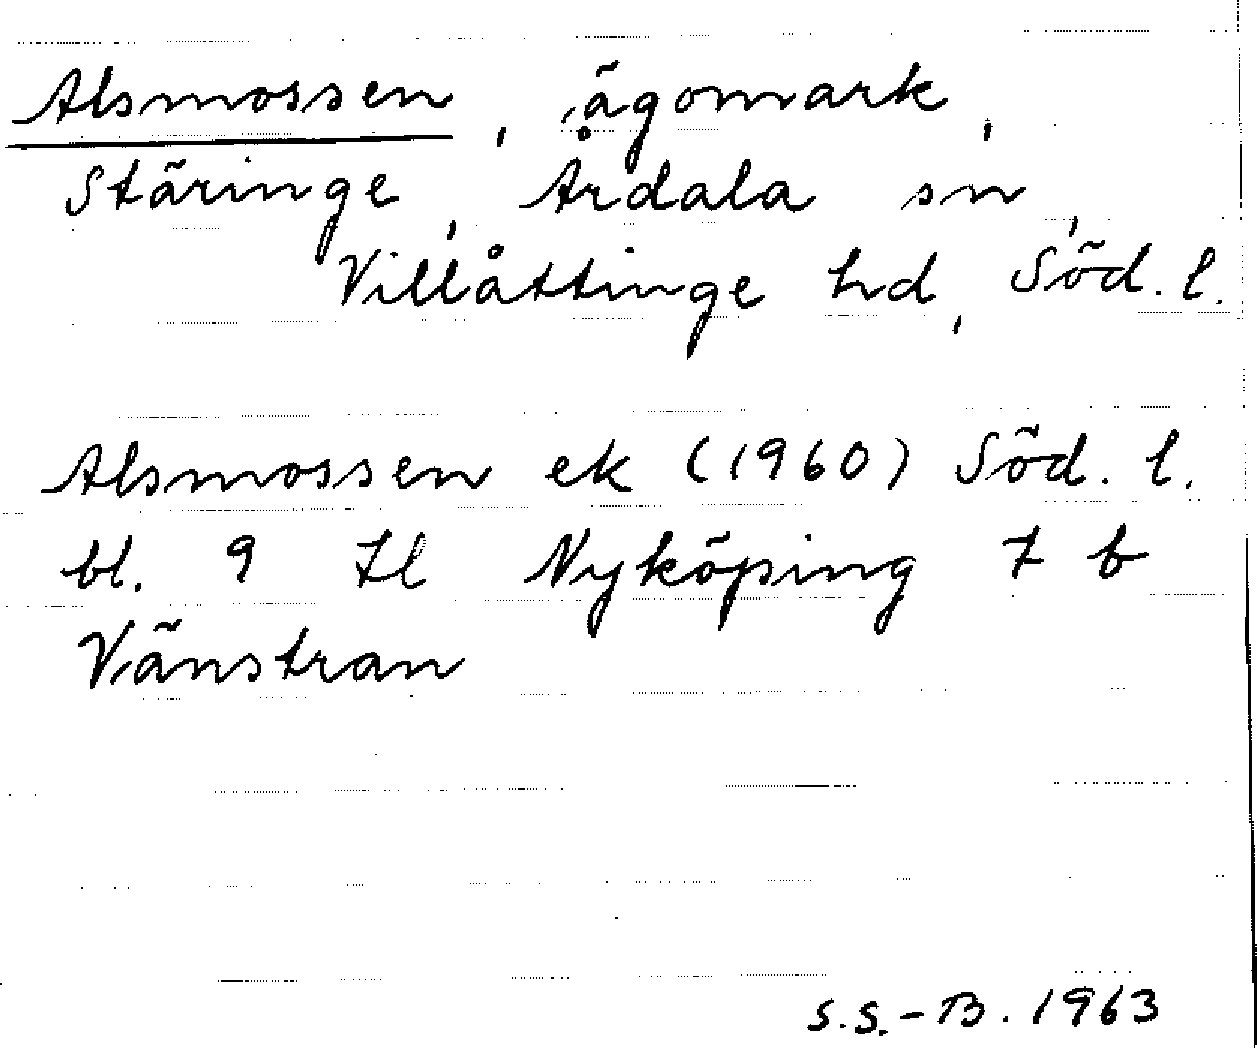 Alsmossen, ägomark,
Stäringe, Årdala sn,
Villåttinge hd, Söd. l.
Alsmossen ek (1960) Söd. l.
bl. 9 Il Nyköping 7 b
Vänstran
S.S.-B. 1963